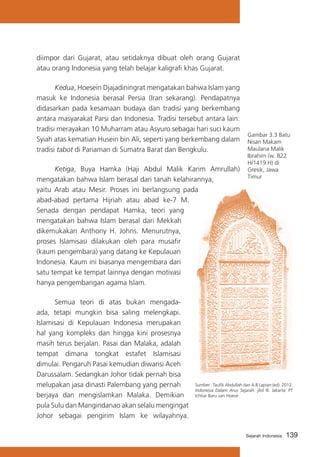 diimpor dari Gujarat, atau setidaknya dibuat oleh orang Gujarat
atau orang Indonesia yang telah belajar kaligrafi khas Gujarat.
Kedua, Hoesein Djajadiningrat mengatakan bahwa Islam yang
masuk ke Indonesia berasal Persia (Iran sekarang). Pendapatnya
didasarkan pada kesamaan budaya dan tradisi yang berkembang
antara masyarakat Parsi dan Indonesia. Tradisi tersebut antara lain:
tradisi merayakan 10 Muharram atau Asyuro sebagai hari suci kaum
Syiah atas kematian Husein bin Ali, seperti yang berkembang dalam
tradisi tabot di Pariaman di Sumatra Barat dan Bengkulu.
Ketiga, Buya Hamka (Haji Abdul Malik Karim Amrullah)
mengatakan bahwa Islam berasal dari tanah kelahirannya,
yaitu Arab atau Mesir. Proses ini berlangsung pada
abad-abad pertama Hijriah atau abad ke-7 M.
Senada dengan pendapat Hamka, teori yang
mengatakan bahwa Islam berasal dari Mekkah
dikemukakan Anthony H. Johns. Menurutnya,
proses Islamisasi dilakukan oleh para musafir
(kaum pengembara) yang datang ke Kepulauan
Indonesia. Kaum ini biasanya mengembara dari
satu tempat ke tempat lainnya dengan motivasi
hanya pengembangan agama Islam.
Semua teori di atas bukan mengada-
ada, tetapi mungkin bisa saling melengkapi.
Islamisasi di Kepulauan Indonesia merupakan
hal yang kompleks dan hingga kini prosesnya
masih terus berjalan. Pasai dan Malaka, adalah
tempat dimana tongkat estafet Islamisasi
dimulai. Pengaruh Pasai kemudian diwarisi Aceh
Darussalam. Sedangkan Johor tidak pernah bisa
melupakan jasa dinasti Palembang yang pernah
berjaya dan mengislamkan Malaka. Demikian
pula Sulu dan Mangindanao akan selalu mengingat
Johor sebagai pengirim Islam ke wilayahnya.
Gambar 3.3 Batu
Nisan Makam
Maulana Malik
Ibrahim (w. 822
H/1419 H) di
Gresik, Jawa
Timur
Sumber : Taufik Abdullah dan A.B Lapian (ed). 2012.
Indonesia Dalam Arus Sejarah, jilid III. Jakarta: PT
Ichtiar Baru van Hoeve
Sejarah Indonesia 139